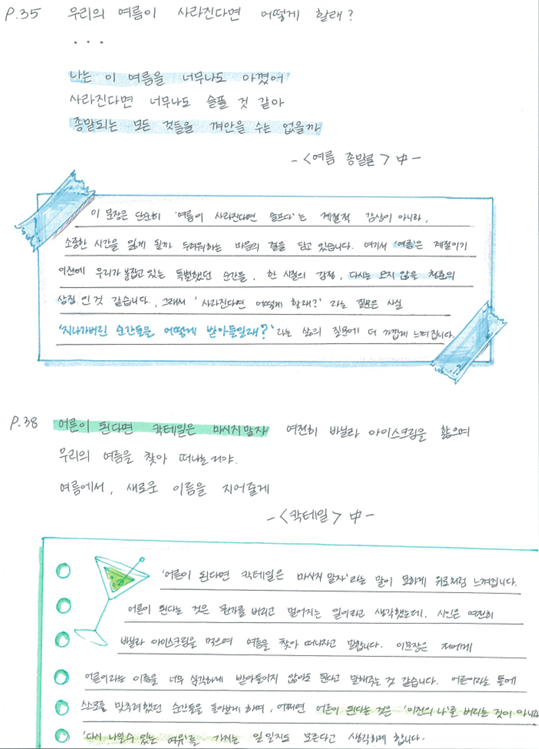 P.35 우리의 여름이 사라진다면 어떻게 할래?
...
나는 이 여름을 너무나도 아꼈어
사라진다면 너무나도 슬플 것 같아
종말되는 모든 것들을 껴안을 수는 없을까
-<여름 종말론> 中-
이 문장은 단순히 '여름이 사라진다면 슬프다'는 계절적 감상이 아니라,
소중한 시간을 잃게 될까 두려워하는 마음의 결을 담고 있습니다. 여기서 '여름'은 계절이기
이전에 우리가 붙잡고 있는 특별했던 순간들, 한 시절의 감정, 다시는 오지 않을 청춘의
상징인 것 같습니다. 그래서 '사라진다면 어떻게 할래?' 라는 질문은 사실
'지나가버린 순간들을 어떻게 받아들일래?'라는 삶의 질문에 더 가깝게 느껴집니다.
P.38 어른이 된다면 칵테일은 마시지말자 여전히 바닐라 아이스크림을 핥으며
우리의 여름을 찾아 떠나는거야.
여름에서, 새로운 이름을 지어줄게
-<칵테일> 中-
'어른이 된다면 칵테일은 마시지말자'라는 말이 묘하게 위로처럼 느껴집니다.
어른이 된다는 것은 뭔가를 버리고 멀어지는 일이라고 생각했는데, 시인은 여전히
바닐라 아이스크림을 먹으며 여름을 찾아 떠나자고 말합니다. 이문장은 저에게
어른이라는 이름을 너무 심각하게 받아들이지 않아도 된다고 말해주는 것 같습니다. 어른이라는 틀에
스스로를 맞추려했던 순간들을 돌아보게 하며, 어쩌면 어른이 된다는 것은 '이전의 나'를 버리는 것이 아니라
'다시 나일수 있는 여유'를 가지는 일일지도 모른다고 생각하게 합니다.